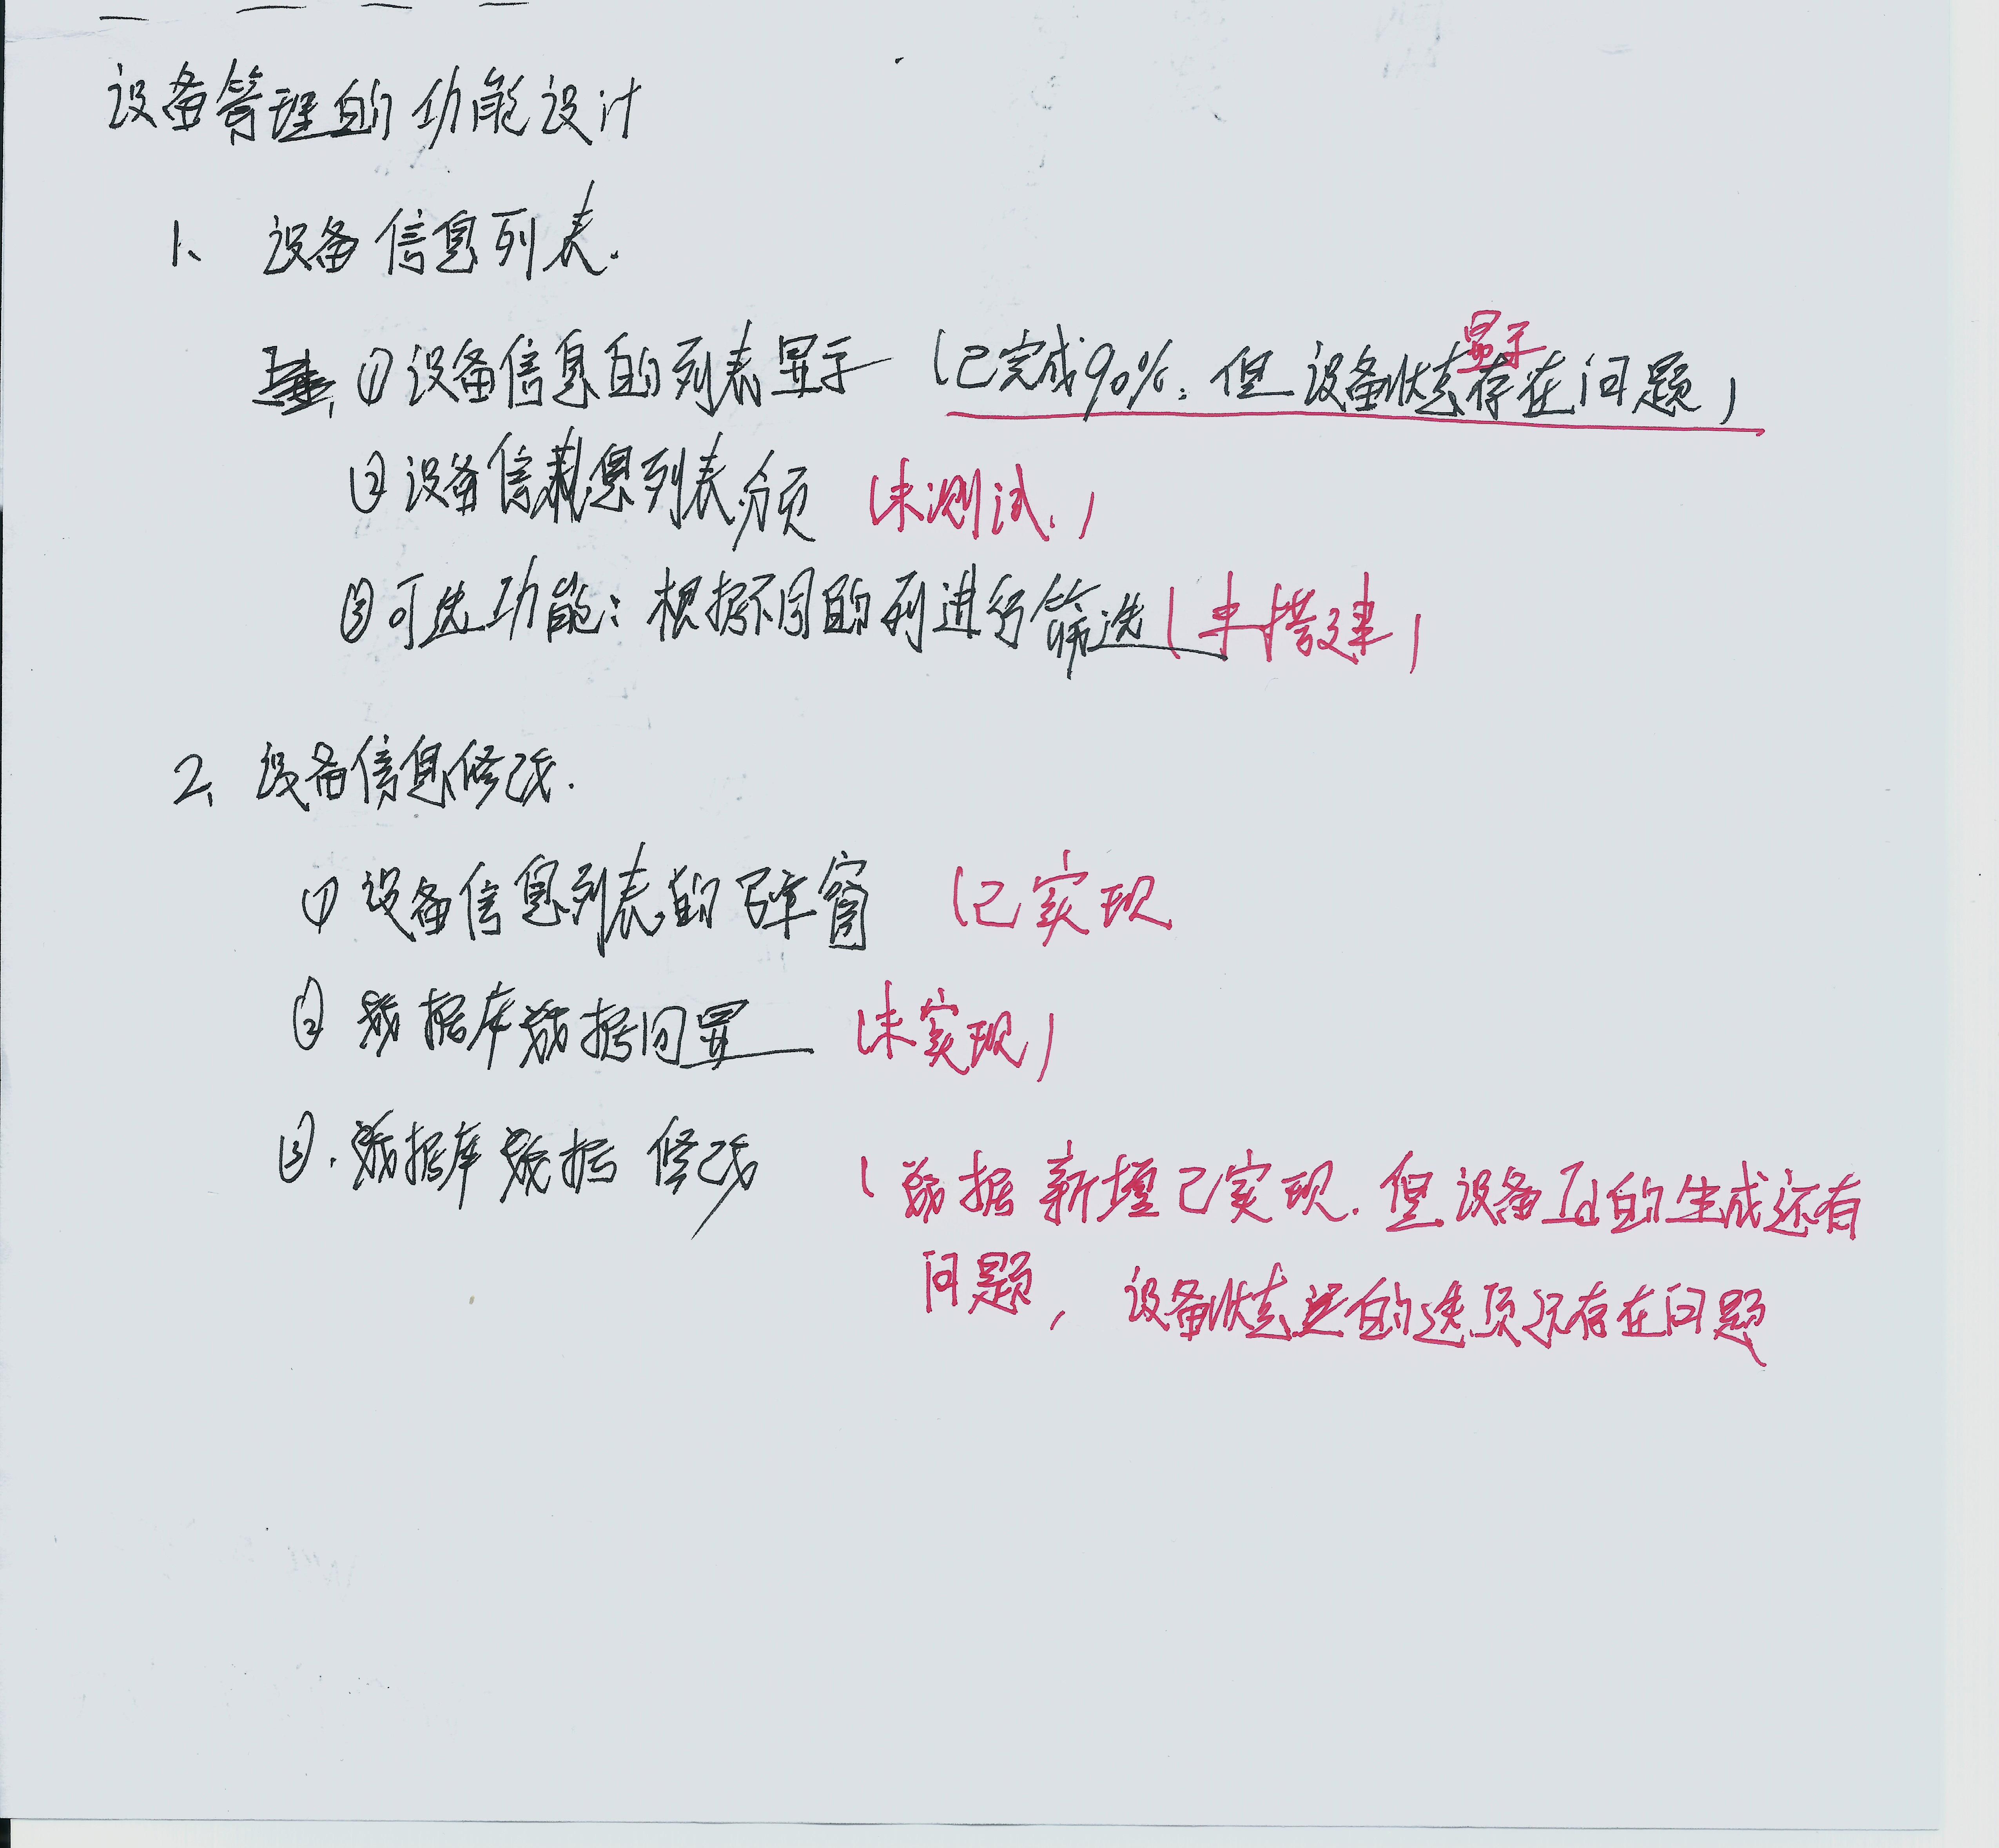 设备管理的功能设计
1、设备信息列表.
①设备信息的列表显示 (已完成90%,但设备状态显示存在问题)
②设备信息列表分页 (未测试.)
③可选功能:根据不同的列进行筛选 (未搭建)
2、设备信息修改.
①设备信息列表的弹窗 (已实现
②数据库数据回显 (未实现)
③.数据库数据修改 (数据新增已实现.但设备Id的生成还有
问题,设备状态的选项还存在问题